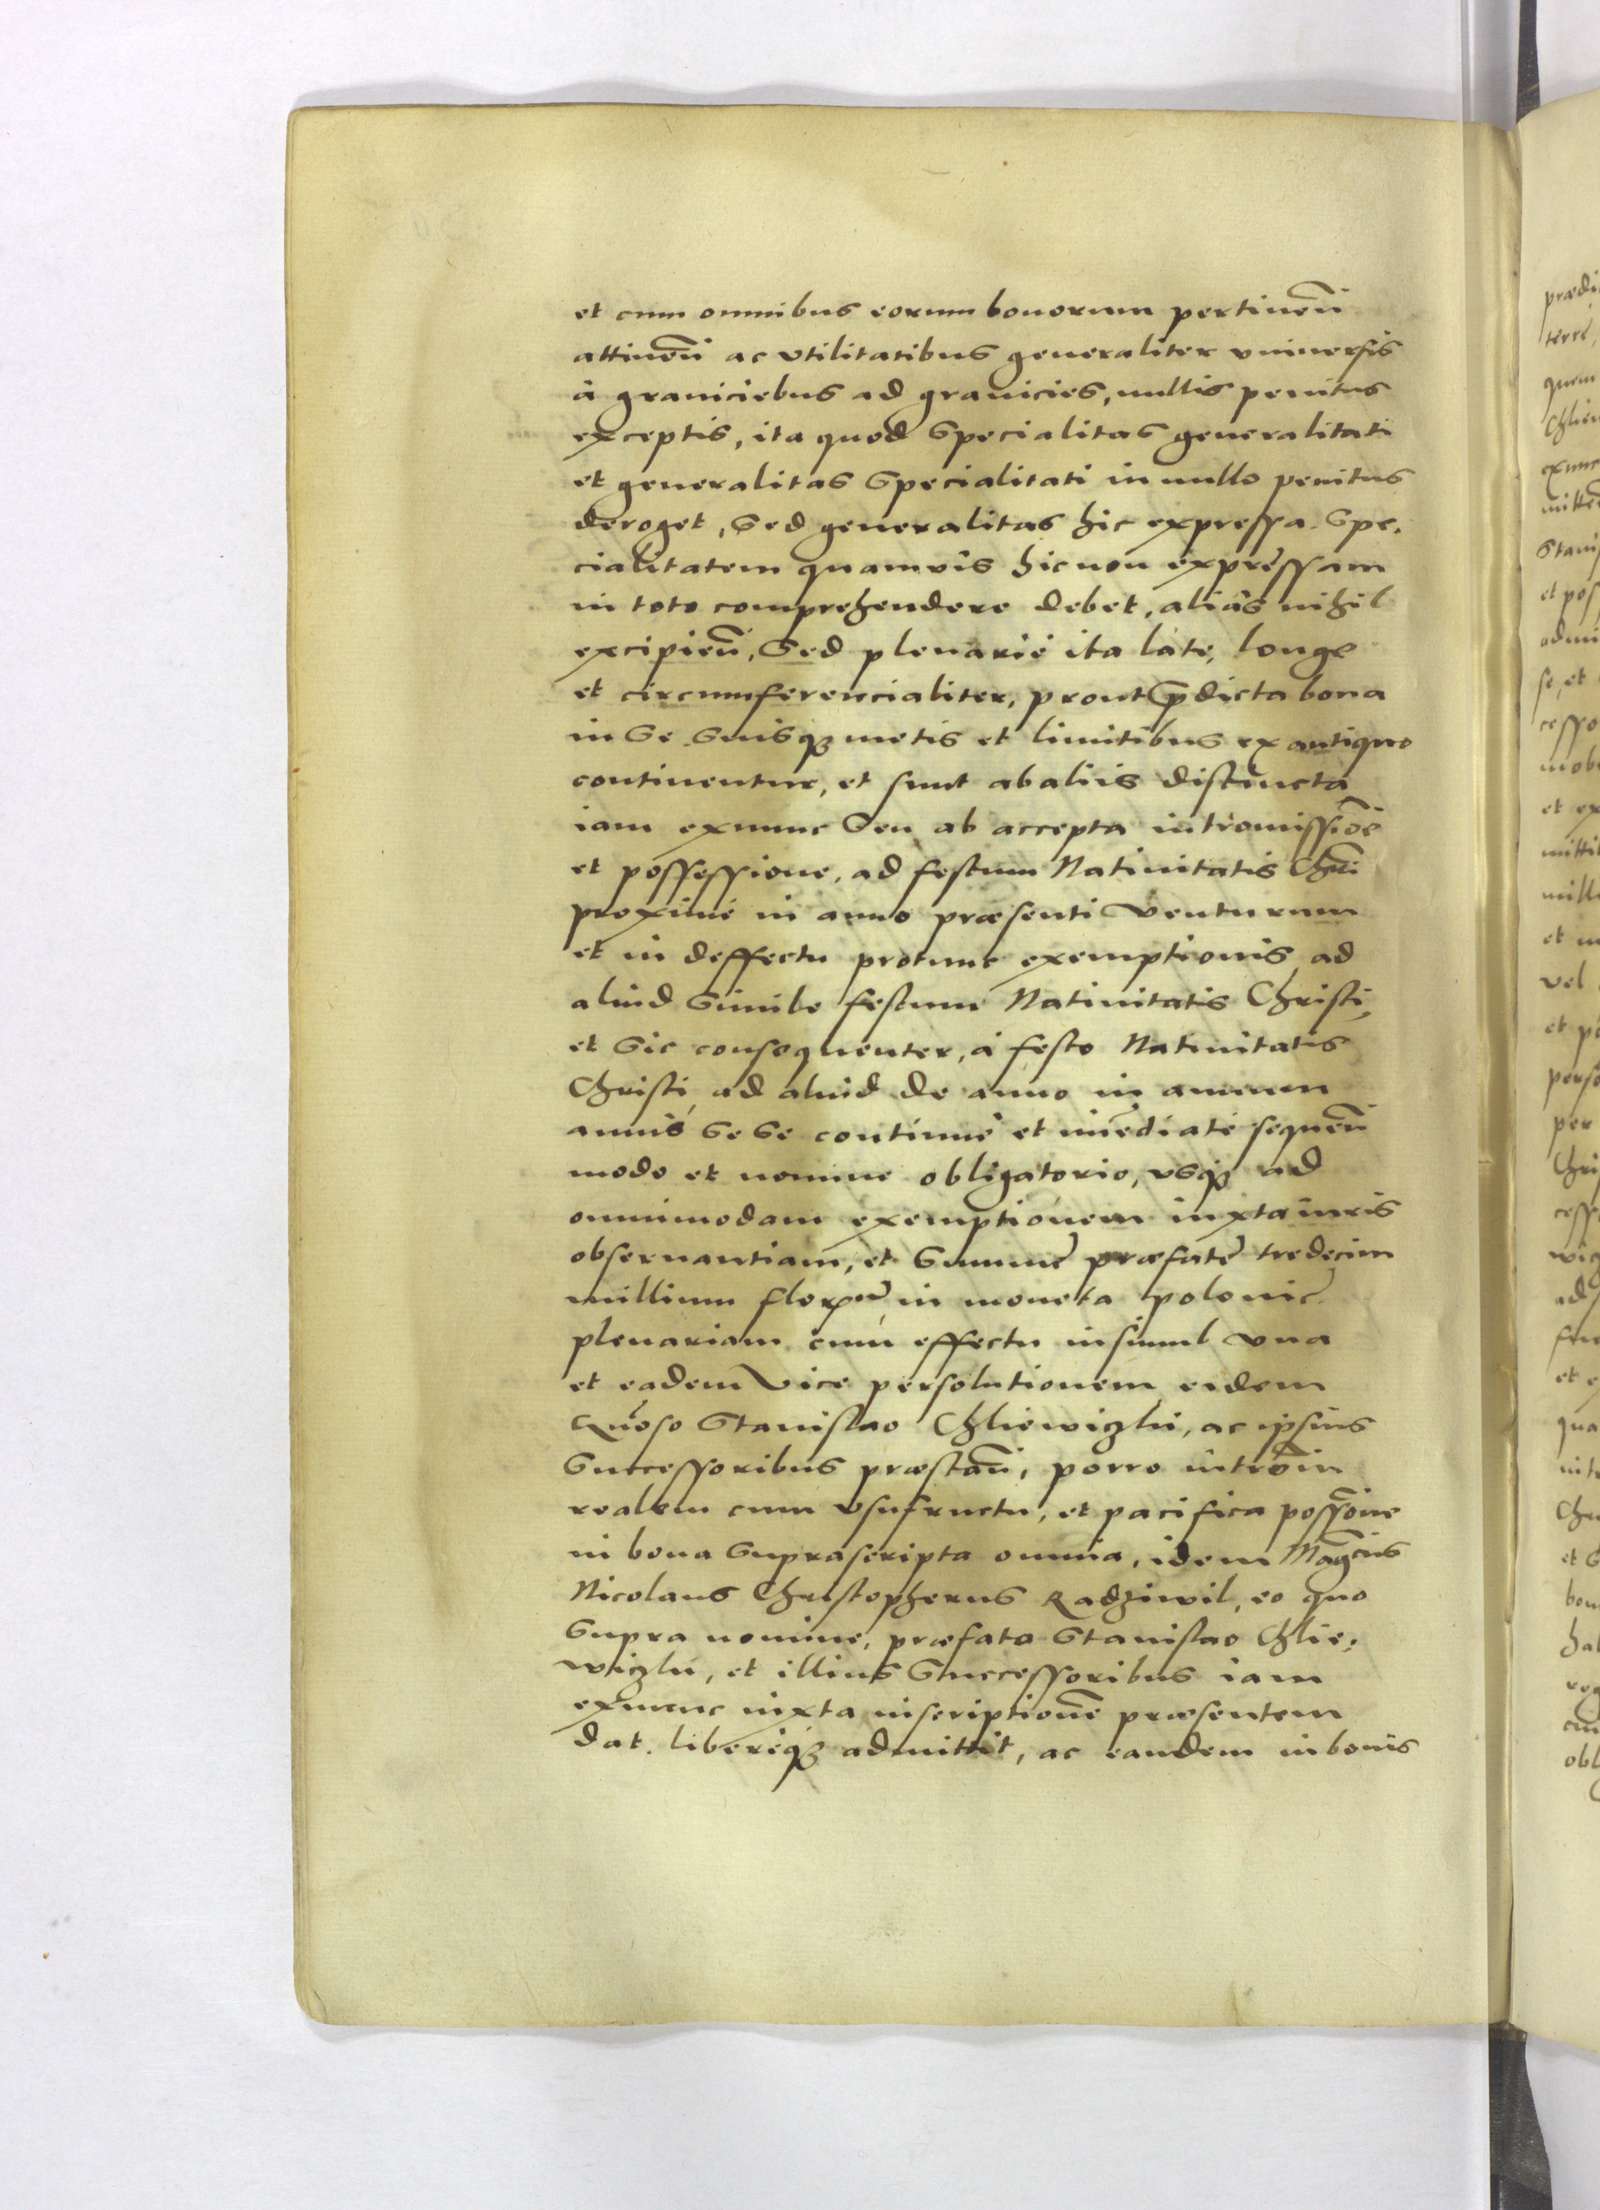 et cum omnibus eorum bonorum pertinen̄
attinen̄ ac vtilitatibus generaliter vniuersis
à graniciebus ad granicies, nullis penitus
exceptis, ita quod Specialitas generalitati
et generalitas Specialitati in nullo penitus
deroget, Sed generalitas hic expressa Spe,
cialitatem quamuis hic non expressam
in toto comprehendere debet, aliàs nihil
excipien̄, Sed plenariè ita latè, longè
et circumferencialiter, prout p̄dicta bona
in Se Suisqȝ metis et limitibus ex antiquo
continentur, et sunt ab aliis distincta
iam exnunc Seu ab accepta intromissiōe
et possessione, ad festum Natiuitatis Chr̄i
proximè in anno præsenti Venturum
et in deffectu protunc exemptionis, ad
aliud Simile festum Natiuitatis Christi,
et Sic consequenter, à festo Natiuitatis
Christi, ad aliud de anno in annum
annis Se Se continuè et im̄ediatè sequen̄
modo et nomine obligatorio, vsqȝ ad
omnimodam exemptionem iuxta iuris
obseruantiam, et Summę præfatę tredecim
millium flor. in moneta polonic.
plenariam cum effectu insimul vna
et eadem Vice persolutionem eidem
Gn̄oso Stanislao Chliewiczki, ac ipsius
Successoribus præstan̄, porro introm̄
realem cum vsufructu, et pacifica poss̄ione
in bona Suprascripta omnia, idem Maḡcus
Nicolaus Christopherus Radziwil, eo quo
Supra nomine, præfato Stanislao Chlie,
wiczki, et illius Successoribus iam
exnunc iuxta inscriptionē præsentem
dat. liberèqȝ admittit, ac eandem in bonis